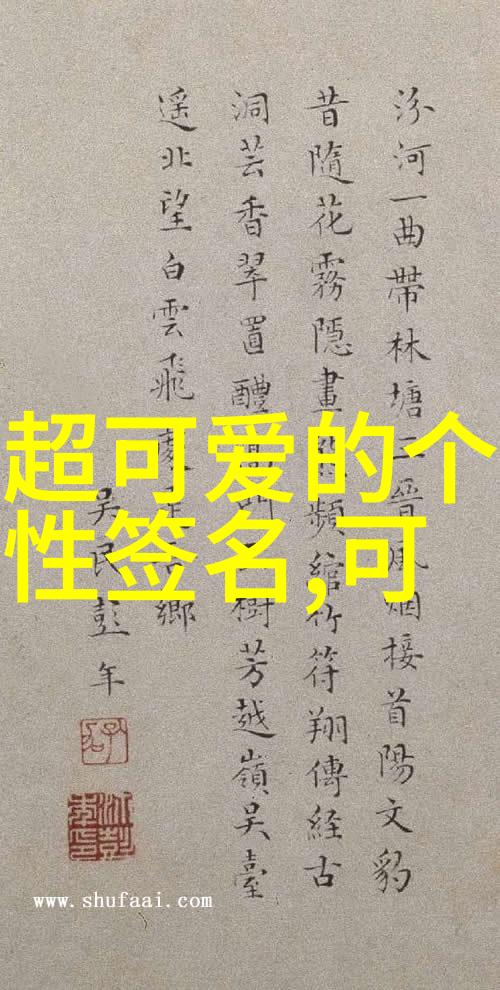 超可爱的个
性签名,可
汾河一曲帶林塘二晉風烟接首陽文豹
昔隨花霧隱畫頻綰竹符翔傳經古
洞芸香翠置醴樹芳越嶺吳臺
遥北望白雲飛鄉
吳民彭年
www.shufaai.com